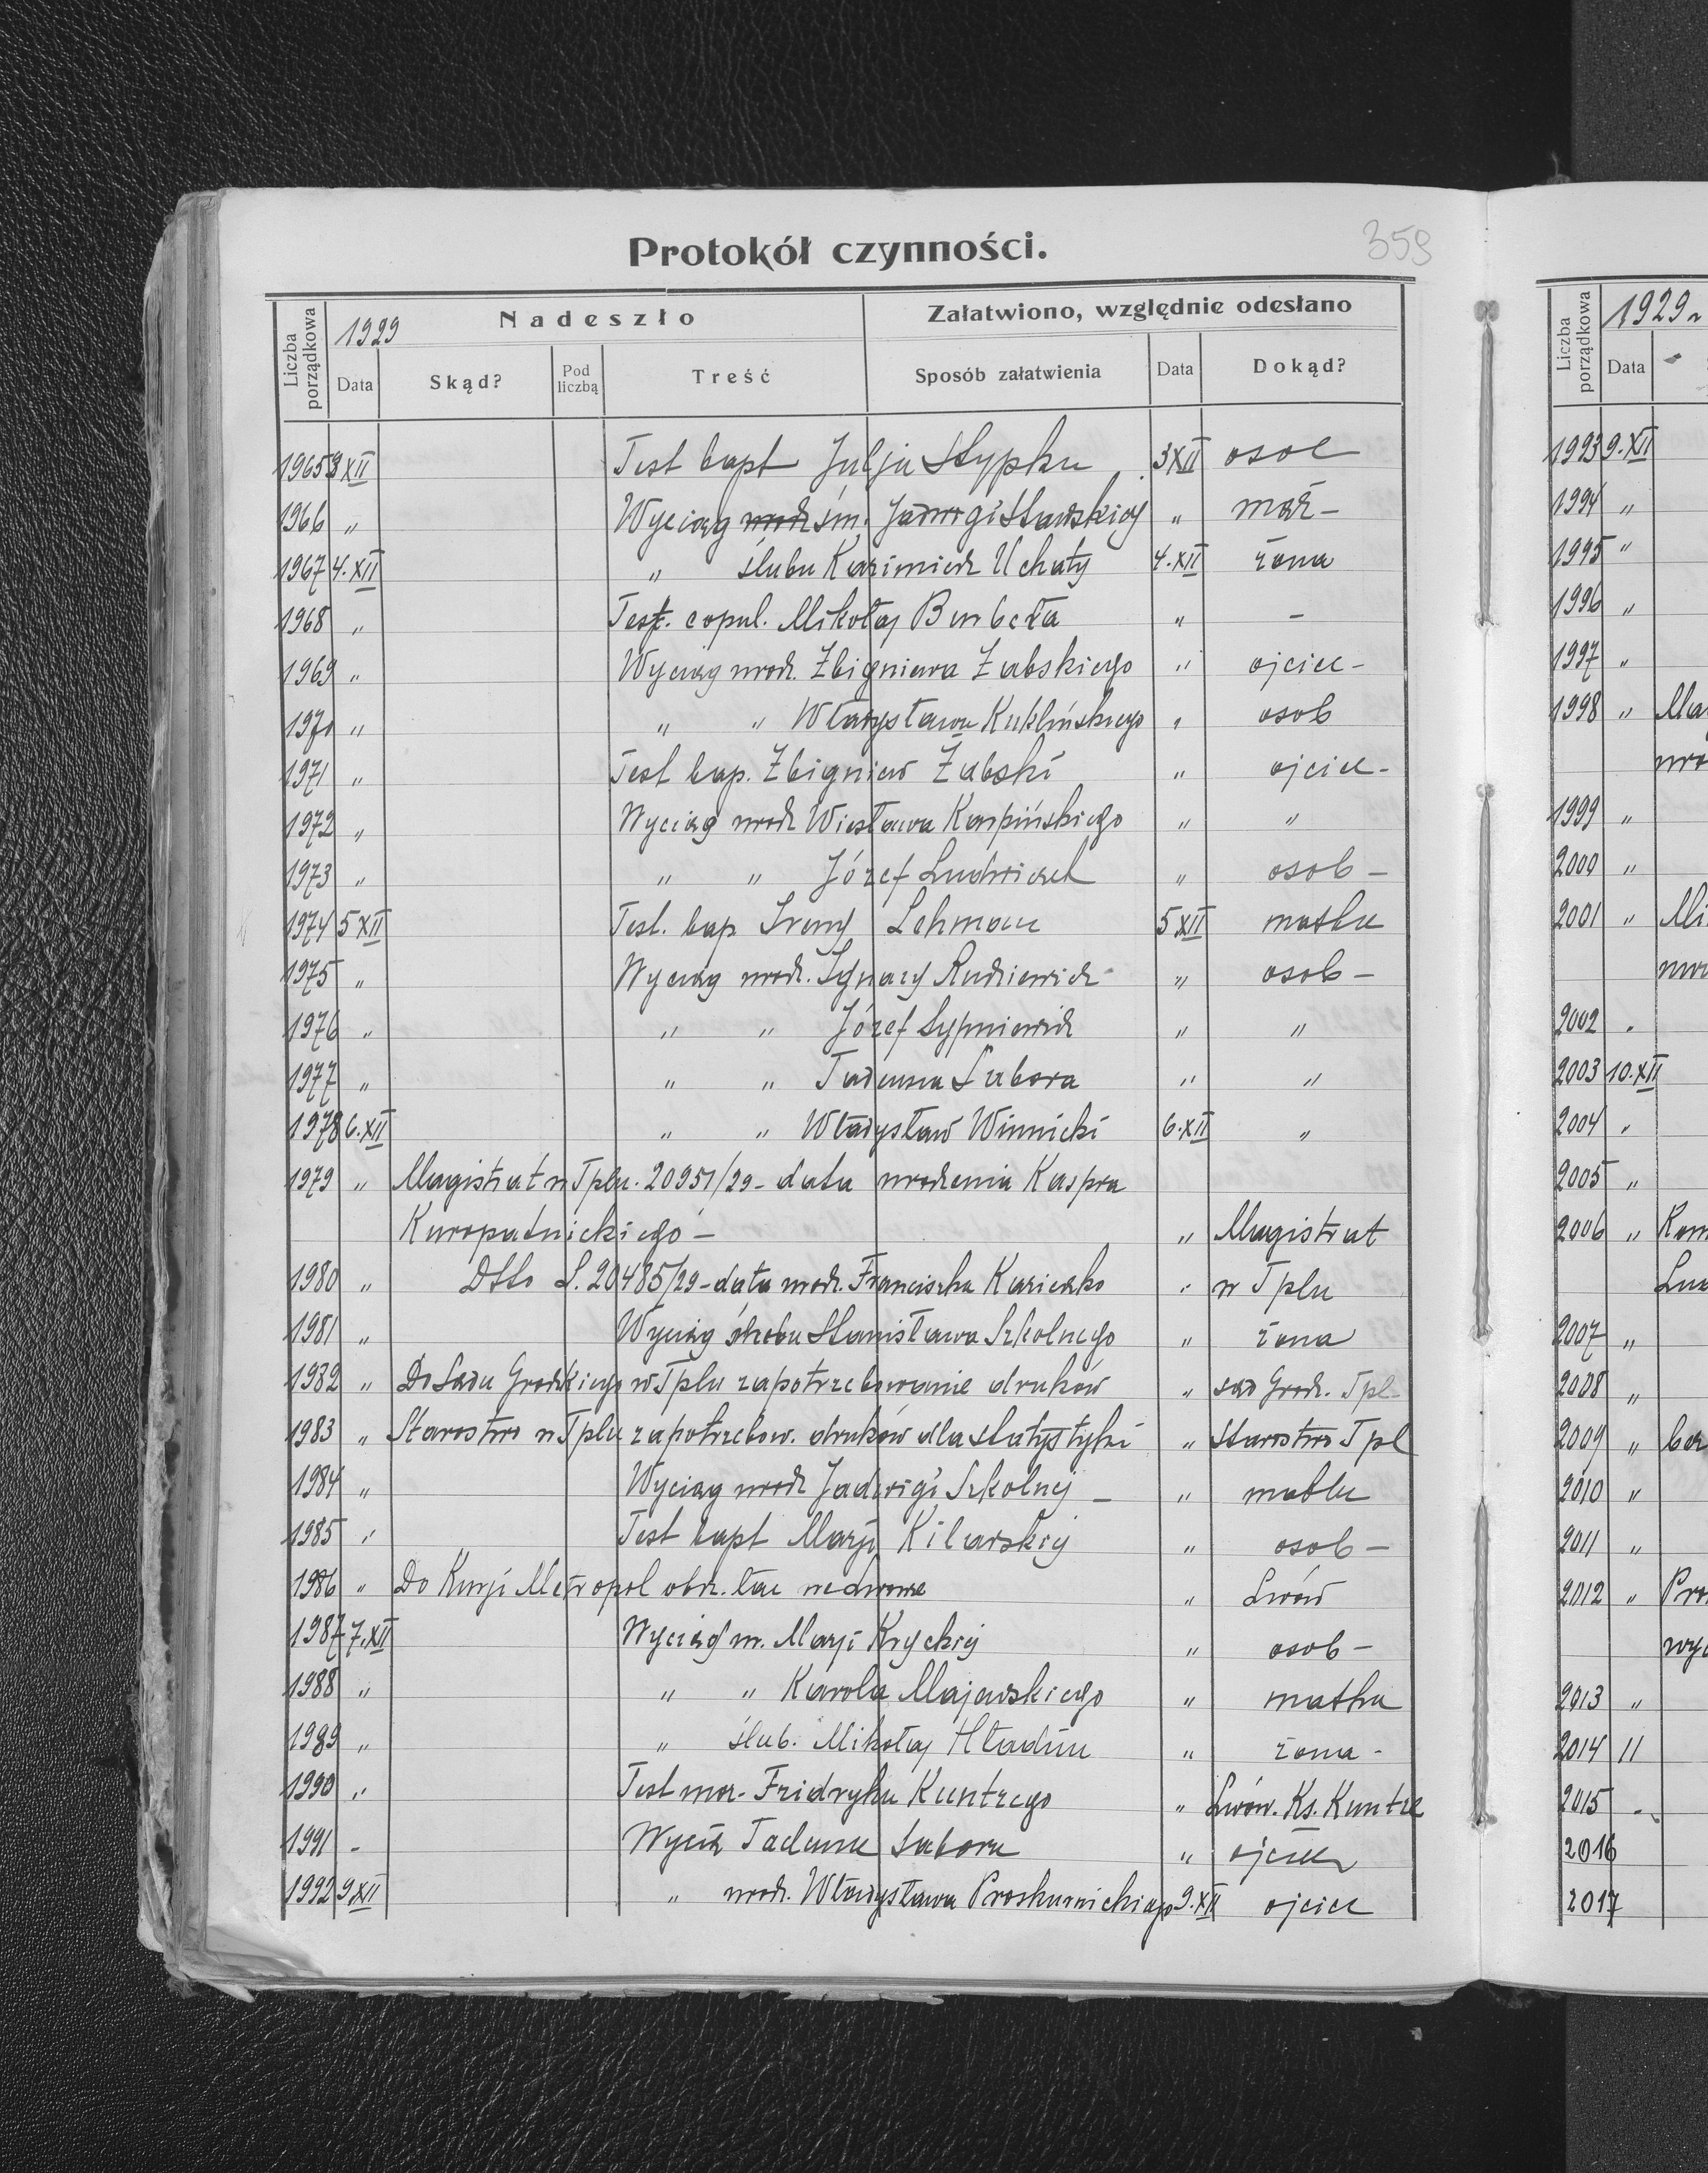 Protokół czynności.
359
Liczba porządkowa
1929
Nadeszło
Załatwiono, względnie odesłano
Data
Skąd?
Pod liczbą
Treść
Sposób załatwienia
Data
Dokąd?
1965 3 XII Test bapt Julja Stypka 3 XII osob
1966 " Wyciąg śm. Jadwigi " mąż -
1967 4. XII " ślubu Kazimierz Uchaty 4. XII żona
1968 " Test. copul. Mikołaj Burbeła " -
1969 " Wyciąg urodz. Zbigniewa Żabskiego " ojciec -
1970 " " " Władysława Kuklińskiego " osob
1971 " Test bap. Zbigniew Żabski " ojciec -
1972 " Wyciąg urodz Wiesława Karpińskiego " "
1973 " " " Józef " osob -
1974 5 XII Test. bap Ireny Lehmann 5 XII matka
1975 " Wyciąg urodz. Ignacy Rudkiewicz " osob -
1976 " " " Józef Sypniewicz " "
1977 " " " Tadeusza Subora " "
1978 6. XII " " Władysław Winnicki 6. XII "
1979 " Magistrat w Tplu. 20951/29 - data urodzenia Kaspra
Kuropatnickiego - " Magistrat
1980 " Dtto L. 20485/29 - data urodz. Franciszka " w Tplu
1981 " Wyciąg ślubu Stanisława Szkolnego " żona
1982 " Do Sadu Grodzkiego w Tplu zapotrzebowanie druków " sąd Grodz. Tpl -
1983 " Starostwo w Tplu zapotrzebow. druków dla statystyki " Starostwo Tpl
1984 " Wyciąg urodz Jadwigi Szkolnej - " matka
1985 " Test bapt Marji Kilarskiej " osob -
1986 " Do Kurji Metropol obrz. łac " Lwów
1987 7. XII Wyciąg ur. Marji Kryckiej " osob -
1988 " " " Karola Majewskiego " matka
1989 " " ślub. Mikołaj " żona -
1990 " Test mor. Fridryka Kuntzego " Lwów. Ks. Kuntze
1991 - Wyciąg Tadeusz Subora " ojciec
1992 9 XII " urodz. Władysława Proskurnickiego 9. XII ojciec
Liczba porządkowa
1929
Data
1993 9. XII
1994 "
1995 "
1996 "
1997 "
1998 "
1999 "
2000 "
2001 "
2002 "
2003 10. XII
2004 "
2005 "
2006 "
2007 "
2008 "
2009 "
2010 "
2011 "
2012 "
2013 "
2014 "
2015 -
2016
2017